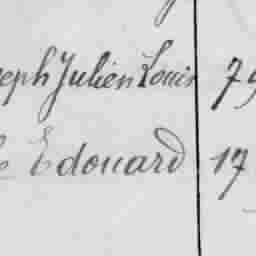 eph Julien Louis 79
Edouard 17